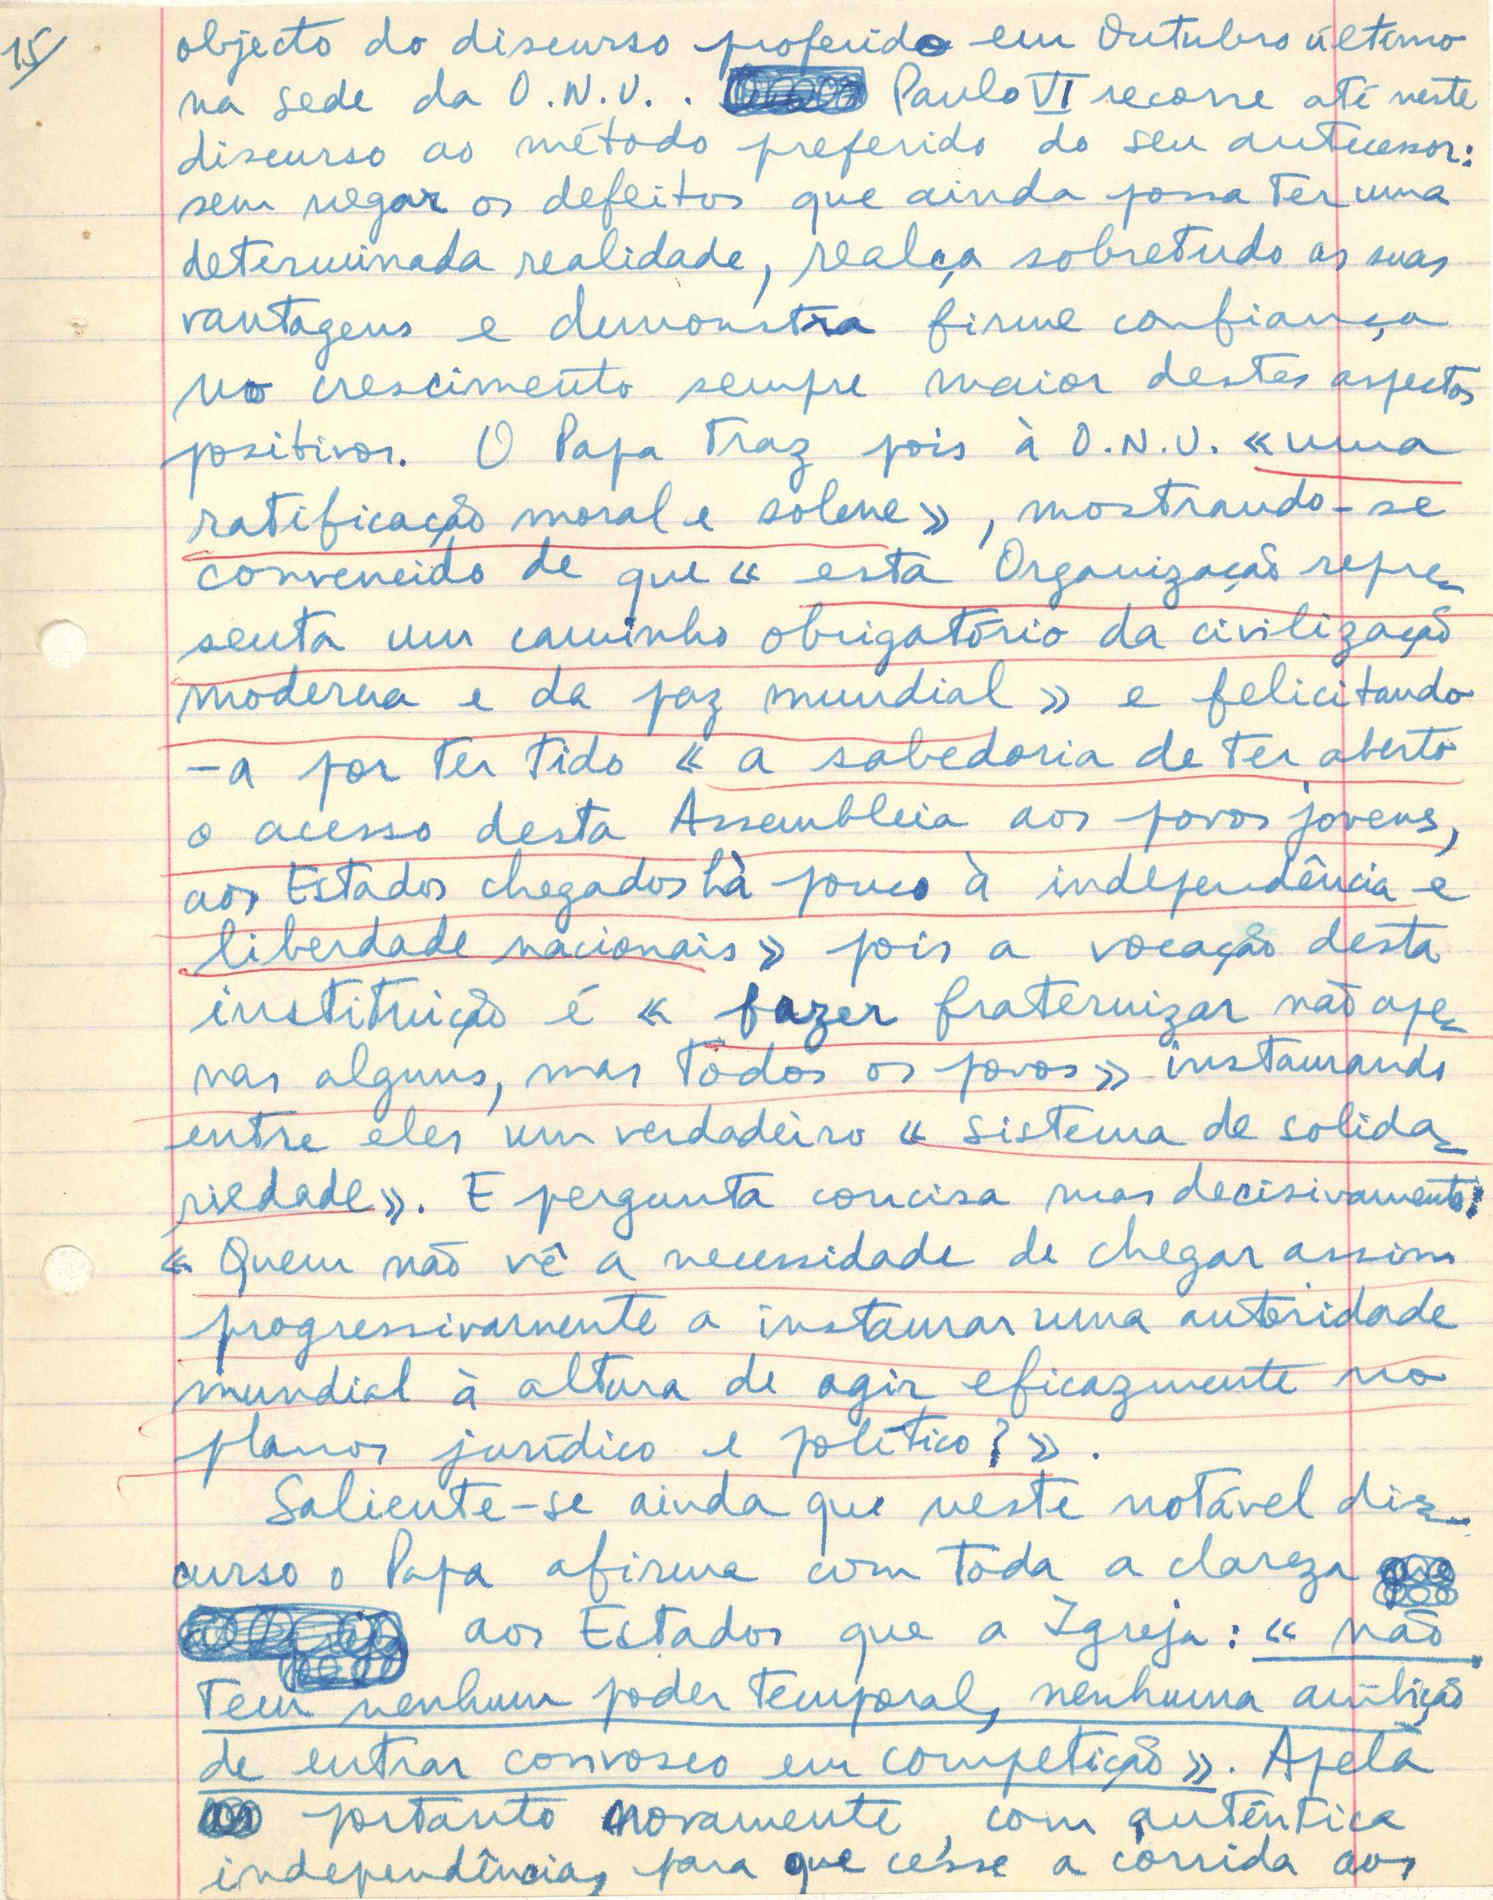 15
objecto do discurso proferido em Outubro último
na sede da O.N.U.. Paulo VI recorre até neste
discurso ao método preferido do seu antecessor:
sem negar os defeitos que ainda possa ter uma
determinada realidade, realça sobretudo as suas
vantagens e demonstra firme confiança
no crescimento sempre maior destes aspectos
positivos. O Papa traz pois à O.N.U. «uma
ratificação moral e solene», mostrando-se
convencido de que «esta Organização repre-
senta um caminho obrigatório da civilização
moderna e da paz mundial» e felicitando
-a por ter tido «a sabedoria de ter aberto
o acesso desta Assembleia aos povos jovens,
aos Estados chegados há pouco à independência e
liberdade nacionais» pois a vocação desta
instituição é «fazer fraternizar não ape-
nas alguns, mas todos os povos» instaurando
entre eles um verdadeiro «sistema de solida-
riedade». E pergunta concisa mas decisivamente:
«Quem não vê a necessidade de chegar assim
progressivamente a instaurar uma autoridade
mundial à altura de agir eficazmente no
planos jurídico e político?».
Saliente-se ainda que neste notável dis-
curso o Papa afirma com toda a clareza
aos Estados que a Igreja: «não
tem nenhum poder temporal, nenhuma ambição
de entrar convosco em competição». Apela
portanto novamente, com autêntica
independência, para que cesse a corrida aos